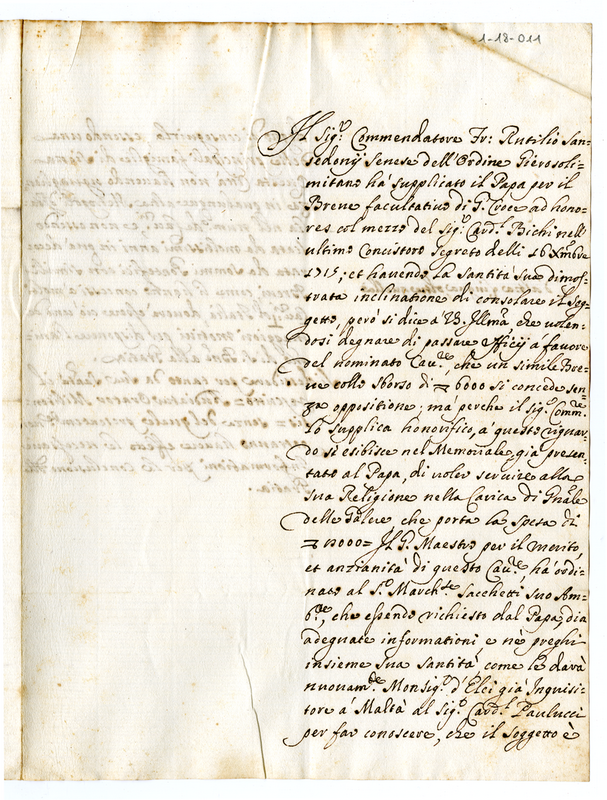 1-18-011
Il Sig.r Commendatore Fr: Rutilio San-
sedonij Senese dell'Ordine Gierosoli-
mitano hà supplicato il Papa per il
Breve facultativo di G. Croce ad hono-
res col mezzo del Sig.r Card.l Bichi nell'
ultimo Concistoro segreto delli 16 Xmbre
1715; et havendo la Santità sua dimos-
trata inclinatione di consolare il sog-
getto, però si dice à V.S. Illma, che volen-
dosi degnare di passare officij à favore
del nominato Cau.re, che un simile Bre-
ve collo sborso di 6000 si concede sen-
za oppositione; mà perche il sig.r Comm.re
lo supplica honorifico, a questo riguar-
do si esibisce nel Memoriale, già presen-
tato al Papa, di voler servire alla
sua Religione nella Carica di Gnãle
delle Galere che porta la spesa di
12000= Il G. Maestro per il merito,
et anzianità di questo Cau.re, hà ordi-
nato al S.r March.se Sacchetti suo Am-
b.re, che essendo richiesto dal Papa, dia
adeguate informationi e nè preghi
insieme sua Santità, come le darà
nuovam.te Monsig.r d'Elci già Inquisi-
tore à Malta al sig.r Card.l Paulucci
per far conoscere, che il soggetto è